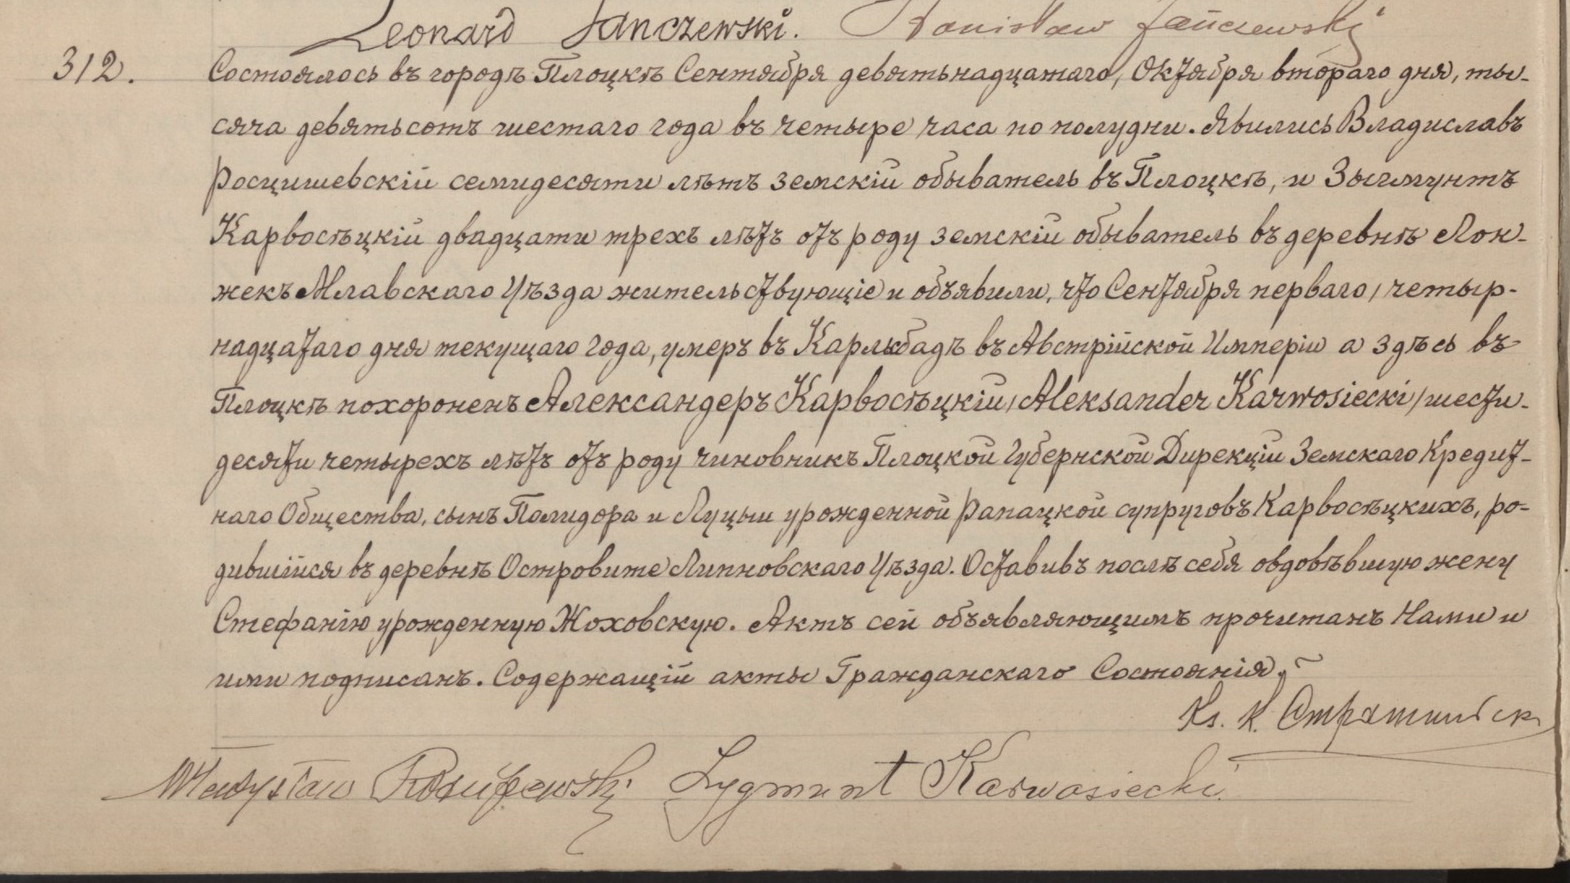 Leonard Janczewski. Stanisław Janczewski
312.
Состоялось въ городѣ Плоцкѣ Сентября девятьнадцатаго, Октября втораго дня, ты-
сяча девятьсотъ шестаго года въ четыре часа по полудни. Явились Владиславъ
Росцишевскій семидесяти лѣтъ земскій обыватель въ Плоцкѣ, и Зыгмунтъ
Карвосѣцкій двадцати трехъ лѣтъ отъ роду земскій обыватель въ деревнѣ Лон-
жекъ Млавскаго Уѣзда жительствующіе и объявили, что Сентября перваго / четыр-
надцатаго дня текущаго года, умеръ въ Карльбадѣ въ Австрійской Имперіи а здѣсь въ
Плоцкѣ похороненъ Александеръ Карвосѣцкій / Aleksander Karwosiecki / шести-
десяти четырехъ лѣтъ отъ роду чиновникъ Плоцкой Губернской Дирекціи Земскаго Кредит-
наго Общества, сынъ Полидора и Луцыи урожденной Рапацкой супруговъ Карвосѣцкихъ, ро-
дившійся въ деревнѣ Островите Липновскаго Уѣзда. Оставивъ послѣ себя овдовѣвшую жену
Стефанію урожденную Жоховскую. Актъ сей объявляющимъ прочитанъ Нами и
ими подписанъ. Содержащій акты Гражданскаго Состоянія,
Кс. К.
Władysław Rościszewski Zygmunt Karwosiecki.